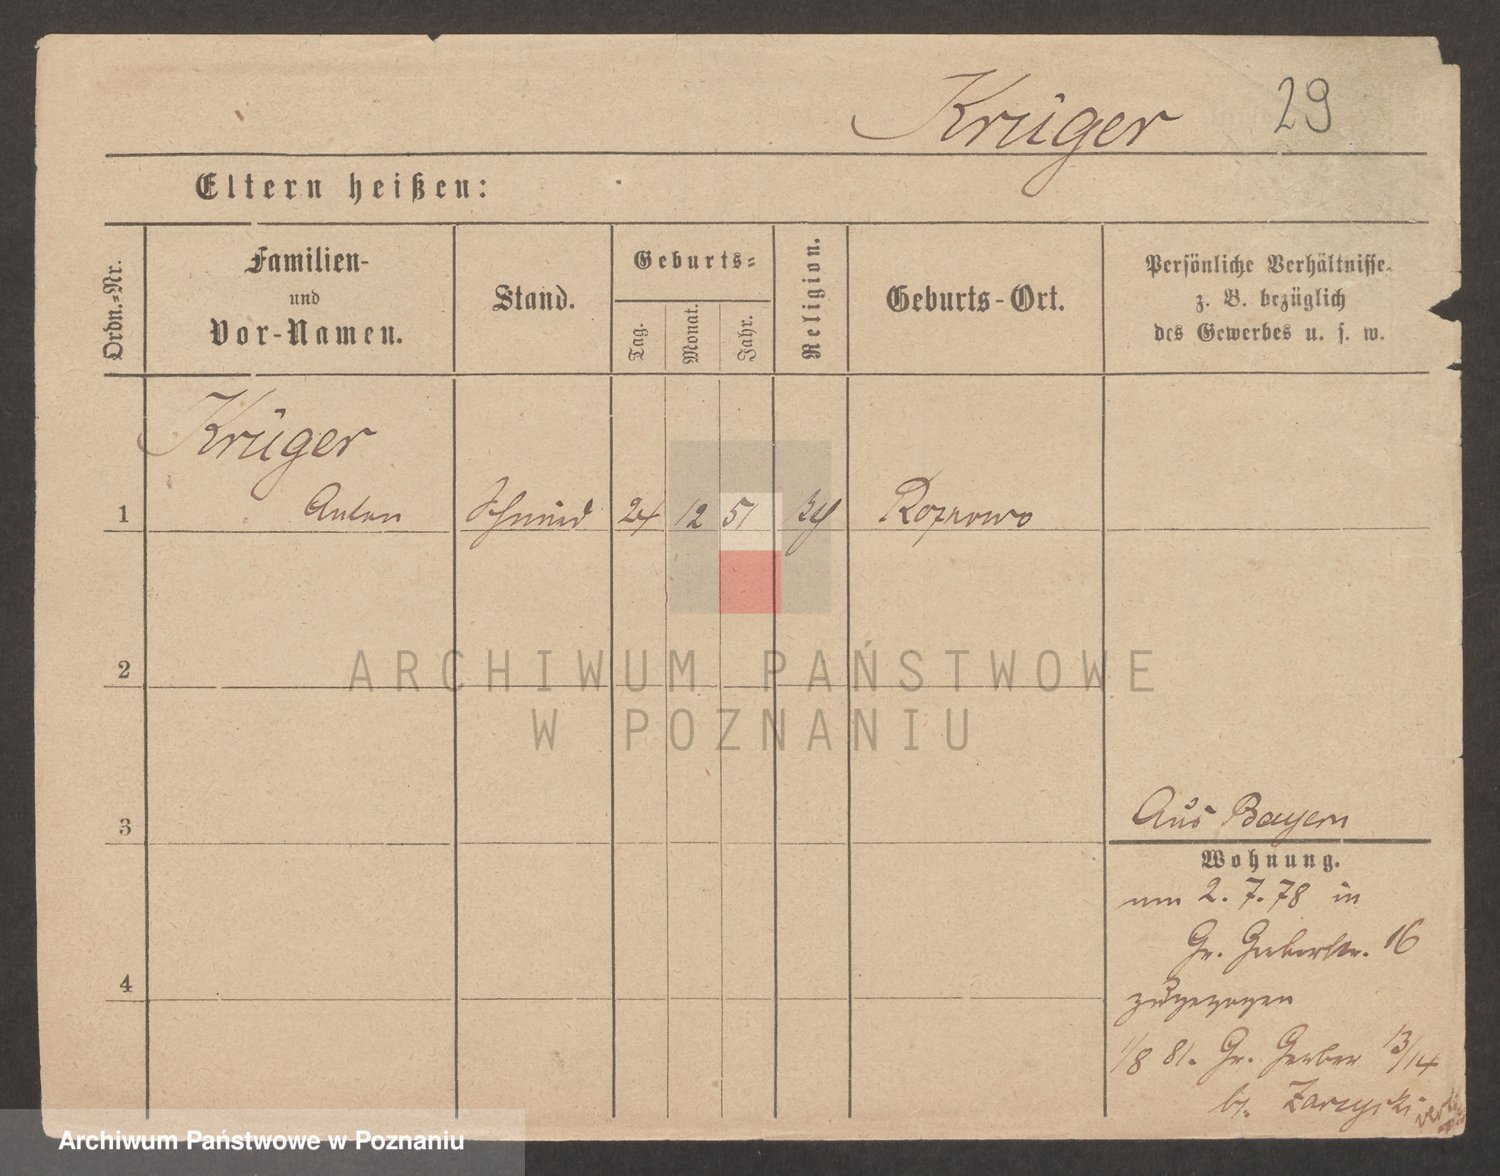 Krüger 29
Eltern heißen:
Ordn.=Nr.
Familien-
und
Vor-Namen.
Stand.
Geburts=
Tag.
Monat.
Jahr.
Religion.
Geburts-Ort.
Persönliche Verhältnisse.
z. B. bezüglich
des Gewerbes u. s. w.
Krüger
1 Anton Schmied 24 12 51 Roznowo
ARCHIWUM PAŃSTWOWE
W POZNANIU
2
3
Aus Bayern
Wohnung.
2. 7. 78 in
Gr. Gerberstr. 16
zugezogen
1/8 81. Gr. Gerber 13/14
b. Zarzyski
4
Archiwum Państwowe w Poznaniu